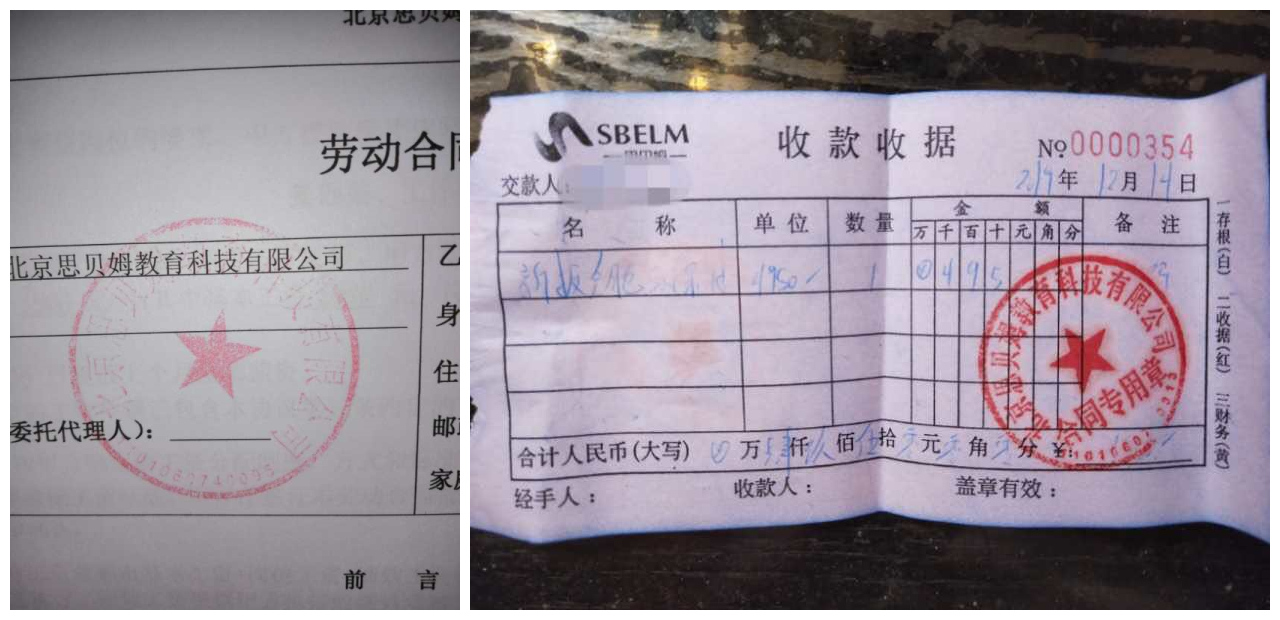 北京思贝姆
劳动合同
北京思贝姆教育科技有限公司
乙
身
住
委托代理人）：
邮
家
前 言
SBELM
收款收据
№0000354
交款人：
2019年12月14日
名 称 单位 数量 金 额 备 注
万千百十元角分
4950 1 ⊗495
合计人民币(大写) ⊗万 仟玖佰伍拾 元 角 分 ¥：
经手人： 收款人： 盖章有效：
一存根(白) 二收据(红) 三财务(黄)
北京思贝姆教育科技有限公司
合同专用章